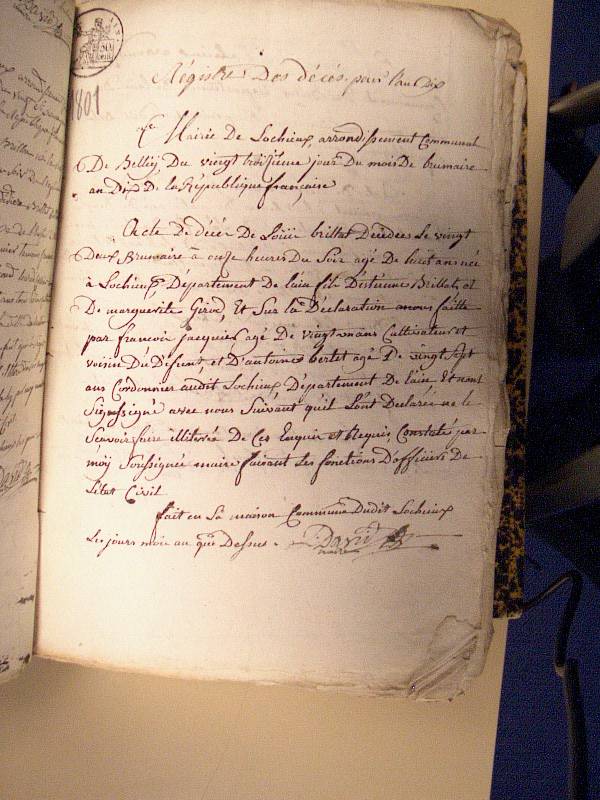 Régistre Des décès pour l'an Dix
1801
Mairie De Lochieux, arrondissement Communal
De Belleÿ, Du vingt troisieme jour Du mois De brumaire
an Dix De la République françaises
Acte De décès De Loüis brillat Décédée Le vingt
Deux Brumaire à onze heures Du Soir agé De huit ans né
à Lochieux, Département De lain fils D'Estienne Brillat, et
De marguerite Girod, Et Sur la Déclaration a nous faitte
par francois jacquier agé De vingt ans Cultivateur et
voisin Du Défunt, et D'antoine bertet agé De vingt sept
ans Cordonnier audit Lochieux Département De l'ain Et nont
Signé avec nous Suivant quil L'ont Declarée ne le
Scavoir faire illiterés De Ces Enquis et Requis, Constaté par
möy Soussignée maire faisant les fonctions D'officiers De
L'état Civil
fait en La maison Commune Dudit Lochieux
Les jours mois an que Dessus. David
maire